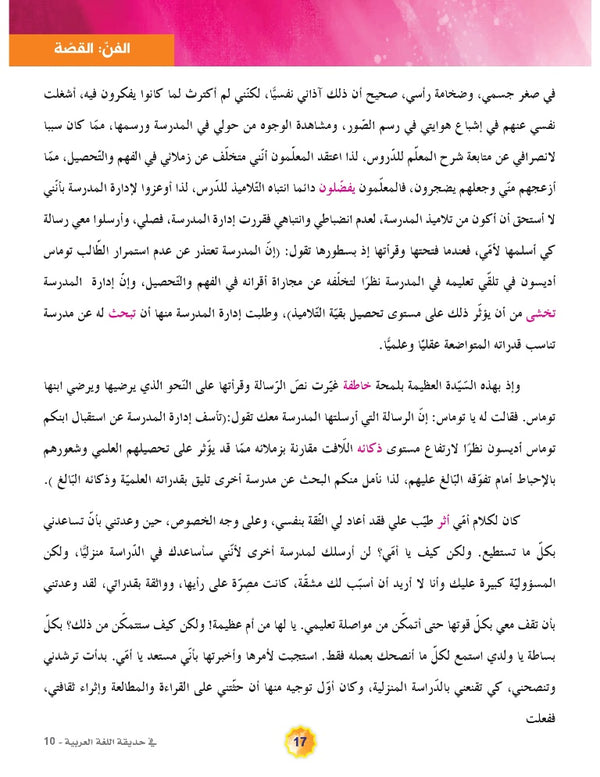 الفنّ: القصّة
في صغر جسمي، وضخامة رأسي، صحيح أن ذلك آذاني نفسيًّا، لكنّني لم أكترث لما كانوا يفكرون فيه، أشغلت
نفسي عنهم في إشباع هوايتي في رسم الصّور، ومشاهدة الوجوه من حولي في المدرسة ورسمها، ممّا كان سببا
لانصرافي عن متابعة شرح المعلّم للدّروس، لذا اعتقد المعلّمون أنّني متخلّف عن زملائي في الفهم والتّحصيل، ممّا
أزعجهم منّي وجعلهم يضجرون، فالمعلّمون يفضّلون دائما انتباه التّلاميذ للدّرس، لذا أوعزوا لإدارة المدرسة بأنّني
لا أستحق أن أكون من تلاميذ المدرسة، لعدم انضباطي وانتباهي فقررت إدارة المدرسة، فصلي، وأرسلوا معي رسالة
كي أسلمها لأمّي، فعندما فتحتها وقرأتها إذ بسطورها تقول: (إنّ المدرسة تعتذر عن عدم استمرار الطّالب توماس
أديسون في تلقّي تعليمه في المدرسة نظرًا لتخلّفه عن مجاراة أقرانه في الفهم والتّحصيل، وإنّ إدارة المدرسة
تخشى من أن يؤثّر ذلك على مستوى تحصيل بقيّة التّلاميذ)، وطلبت إدارة المدرسة منها أن تبحث له عن مدرسة
تناسب قدراته المتواضعة عقليًا وعلميًّا.
وإذ بهذه السّيّدة العظيمة بلمحة خاطفة غيّرت نصّ الرّسالة وقرأتها على النّحو الذي يرضيها ويرضي ابنها
توماس. فقالت له يا توماس: إنّ الرسالة التي أرسلتها المدرسة معك تقول:(تأسف إدارة المدرسة عن استقبال ابنكم
توماس أديسون نظرًا لارتفاع مستوى ذكائه اللّافت مقارنة بزملائه ممّا قد يؤثر على تحصيلهم العلمي وشعورهم
بالإحباط أمام تفوّقه البّالغ عليهم، لذا نأمل منكم البحث عن مدرسة أخرى تليق بقدراته العلميّة وذكائه البّالغ ).
كان لكلام أمّي أثر طيّب علي فقد أعاد لي الثّقة بنفسي، وعلى وجه الخصوص، حين وعدتني بأنّ تساعدني
بكلّ ما تستطيع. ولكن كيف يا أمّي؟ لن أرسلك لمدرسة أخرى لأنّني سأساعدك في الدّراسة منزليًّا، ولكن
المسؤوليّة كبيرة عليك وأنا لا أريد أن أسبّب لك مشقّة، كانت مصرّة على رأيها، وواثقة بقدراتي، لقد وعدتني
بأن تقف معي بكلّ قوتها حتى أتمكّن من مواصلة تعليمي. يا لها من أم عظيمة! ولكن كيف ستتمكّن من ذلك؟ بكلّ
بساطة يا ولدي استمع لكلّ ما أنصحك بعمله فقط. استجبت لأمرها وأخبرتها بأنّي مستعد يا أمّي. بدأت ترشدني
وتنصحني، كي تقنعني بالدّراسة المنزلية، وكان أوّل توجيه منها أن حثّتني على القراءة والمطالعة وإثراء ثقافتي،
ففعلت
17
في حديقة اللغة العربية - 10